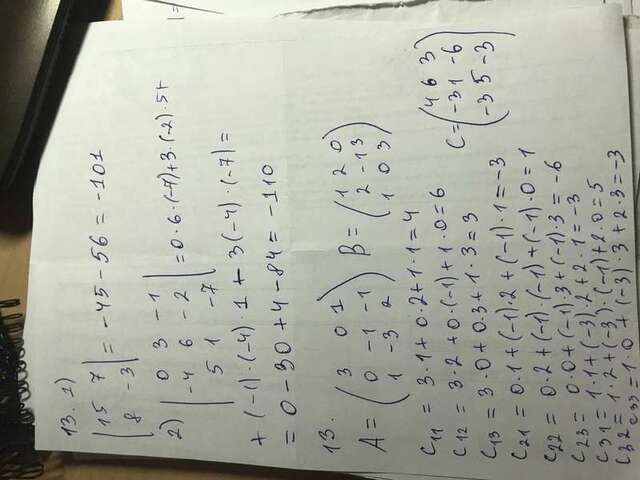 13. 1)
|15 7|
|8 -3| = -45 - 56 = -101
2) |0 3 -1|
|-4 6 -2| = 0·6·(-7)+3·(-2)·5+
|5 1 -7|
+ (-1)·(-4)·1 - 3(-4)·(-7) =
= 0 - 30 + 4 - 84 = -110
13.
A = (3 0 1
0 -1 -1
1 -3 2) B = (1 2 0
2 -1 3
1 0 3)
c11 = 3·1+0·2+1·1=4
c12 = 3·2+0·(-1)+1·0=6
c13 = 3·0+0·3+1·3=3
c21 = 0·1+(-1)·2+(-1)·1=-3
c22 = 0·2+(-1)·(-1)+(-1)·0=1
c23 = 0·0+(-1)·3+(-1)·3=-6
c31 = 1·1+(-3)·2+2·1=-3
c32 = 1·2+(-3)·(-1)+2·0=5
c33 = 1·0+(-3)·3+2·3=-3
C = (4 6 3
-3 1 -6
-3 5 -3)